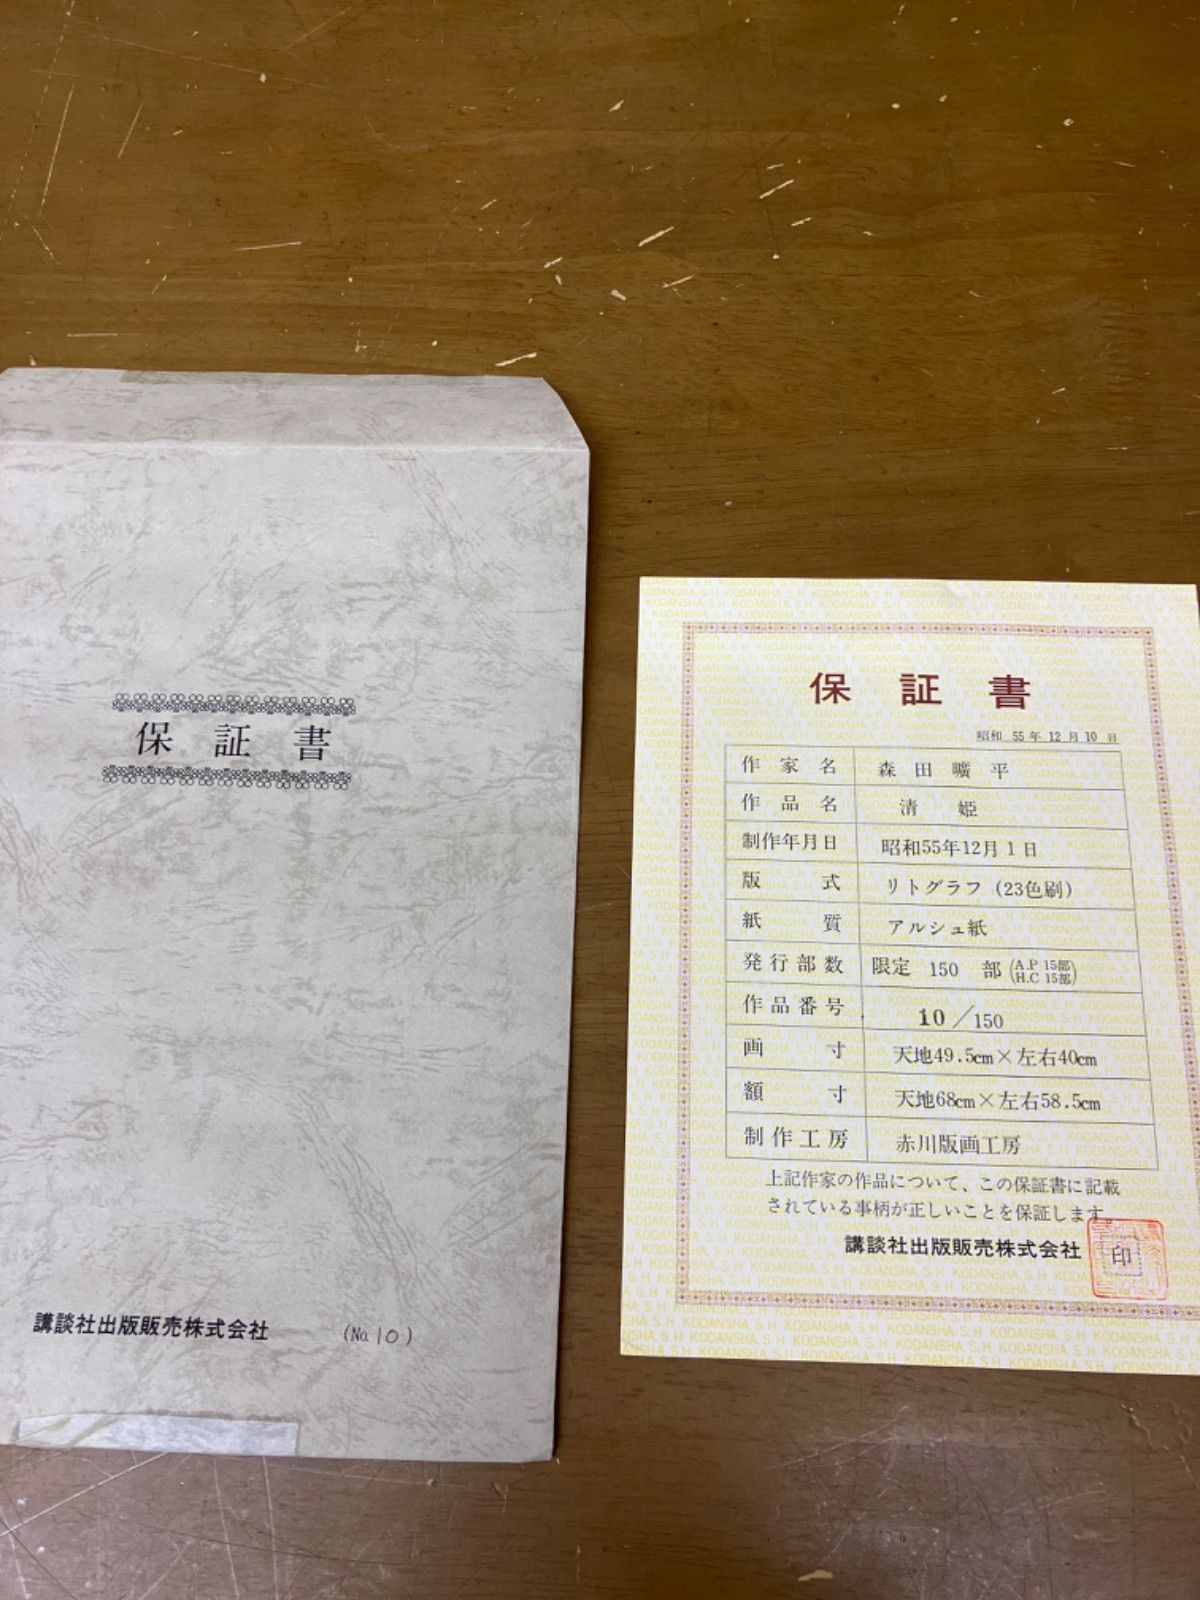 保証書
講談社出版販売株式会社 (No.10)
保証書
昭和 55年 12月 10日
作家名 森田曠平
作品名 清姫
制作年月日 昭和55年12月1日
版式 リトグラフ(23色刷)
紙質 アルシュ紙
発行部数 限定 150 部 (A.P 15部 H.C 15部)
作品番号 10/150
画寸 天地49.5cm×左右40cm
額寸 天地68cm×左右58.5cm
制作工房 赤川版画工房
上記作家の作品について、この保証書に記載
されている事柄が正しいことを保証します
講談社出版販売株式会社 印
KODANSHA. S. H